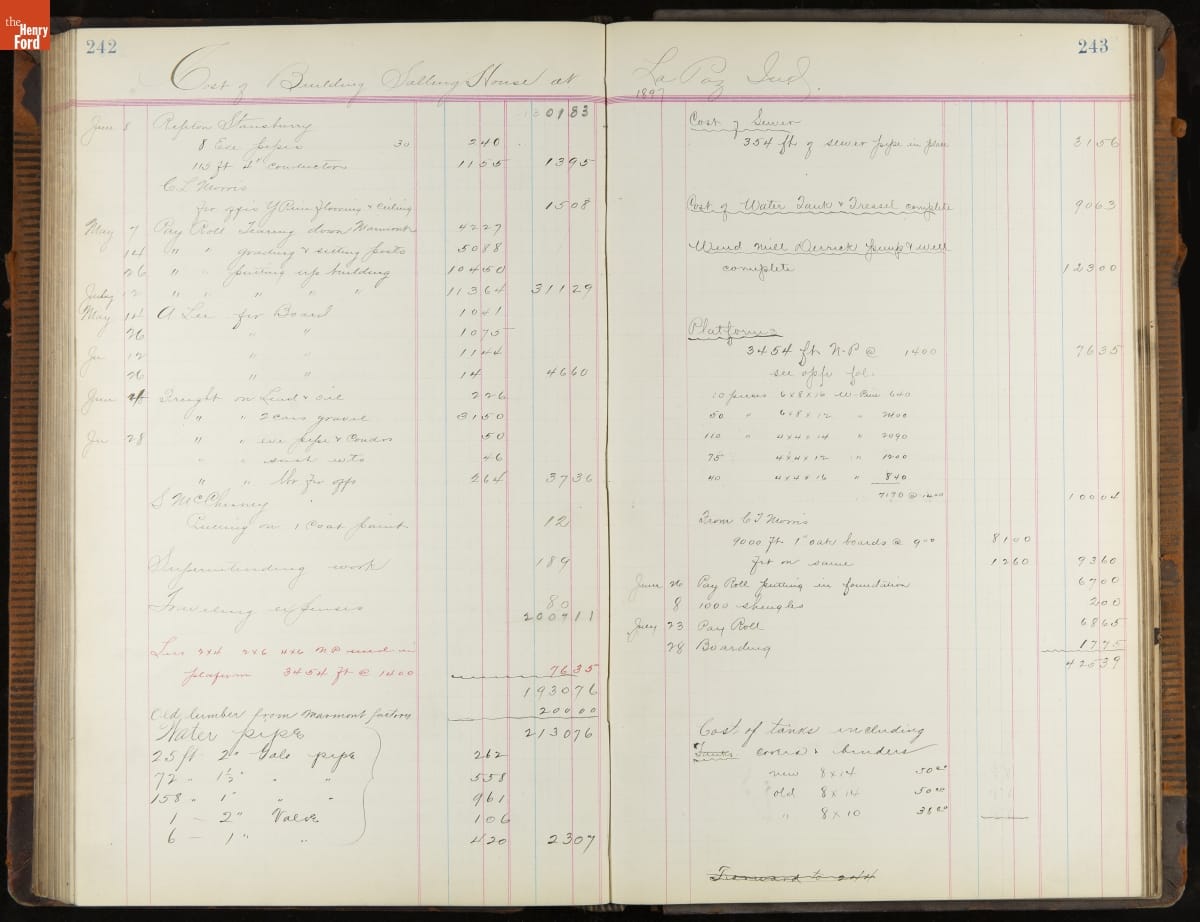 the
Henry
Ford
242
Cost of Building Salting House at
130183
June 8 Repton Stansbury
8 Exe pipes 30 240
115 ft 4" conductor 1155 1395
C L Morris
Y Pine flooring & ceiling 1508
May 7 Pay Roll Tearing down Marmont 4227
14 " " grading & setting posts 5088
26 " " putting up building 10450
July 12 " " " " " 11364 31129
May 14 A Lee for Board 1041
26 " " 1075
Ju 12 " " 1144
26 " " 14 4660
June 4 Freight on Lead & oil 226
" " 2 cars gravel 3150
Ju 28 " " exe pipe & Condrs 50
" " sash wts 46
" " 264 3736
S McChesney
Putting on 1 coat paint 12
Superintending work 189
Traveling expenses 80
200711
Less 2x4 2x6 4x6 N P used in
platform 3454 ft @ 1400 7635
193076
Old lumber from Marmont factory 20000
Water pipe 213076
25 ft 2" Galv pipe 262
72 " 1½" " " 558
158 " 1" " " 961
1 — 2" Valve 106
6 — 1" " 420 2307
243
La Paz Ind
1897
Cost of Sewer
354 ft of sewer pipe in place 3156
Cost of Water Tank & Tressel complete 9063
Wind mill Derrick pump & well
complete 12300
Platforms
3454 ft N-P @ 1400 7635
see opp fol.
10 pieces 6x8x16 W-Pine 640
50 " 6x8x12 " 2400
110 " 4x4x14 " 2090
75 " 4x4x12 " 1200
40 " 4x4x16 " 840
7170 @ 1400 10004
From C L Morris
9000 ft 1" oak boards @ 9.00 8100
frt on same 1260 9360
June 26 Pay Roll putting in foundation 6700
8 1000 shingles 200
July 23 Pay Roll 6865
28 Boarding 1775
42539
Cost of tanks including
Tanks covers & binders
new 8x14 50.00
old 8x14 50.00
" 8x10 38.00
Forward to 244